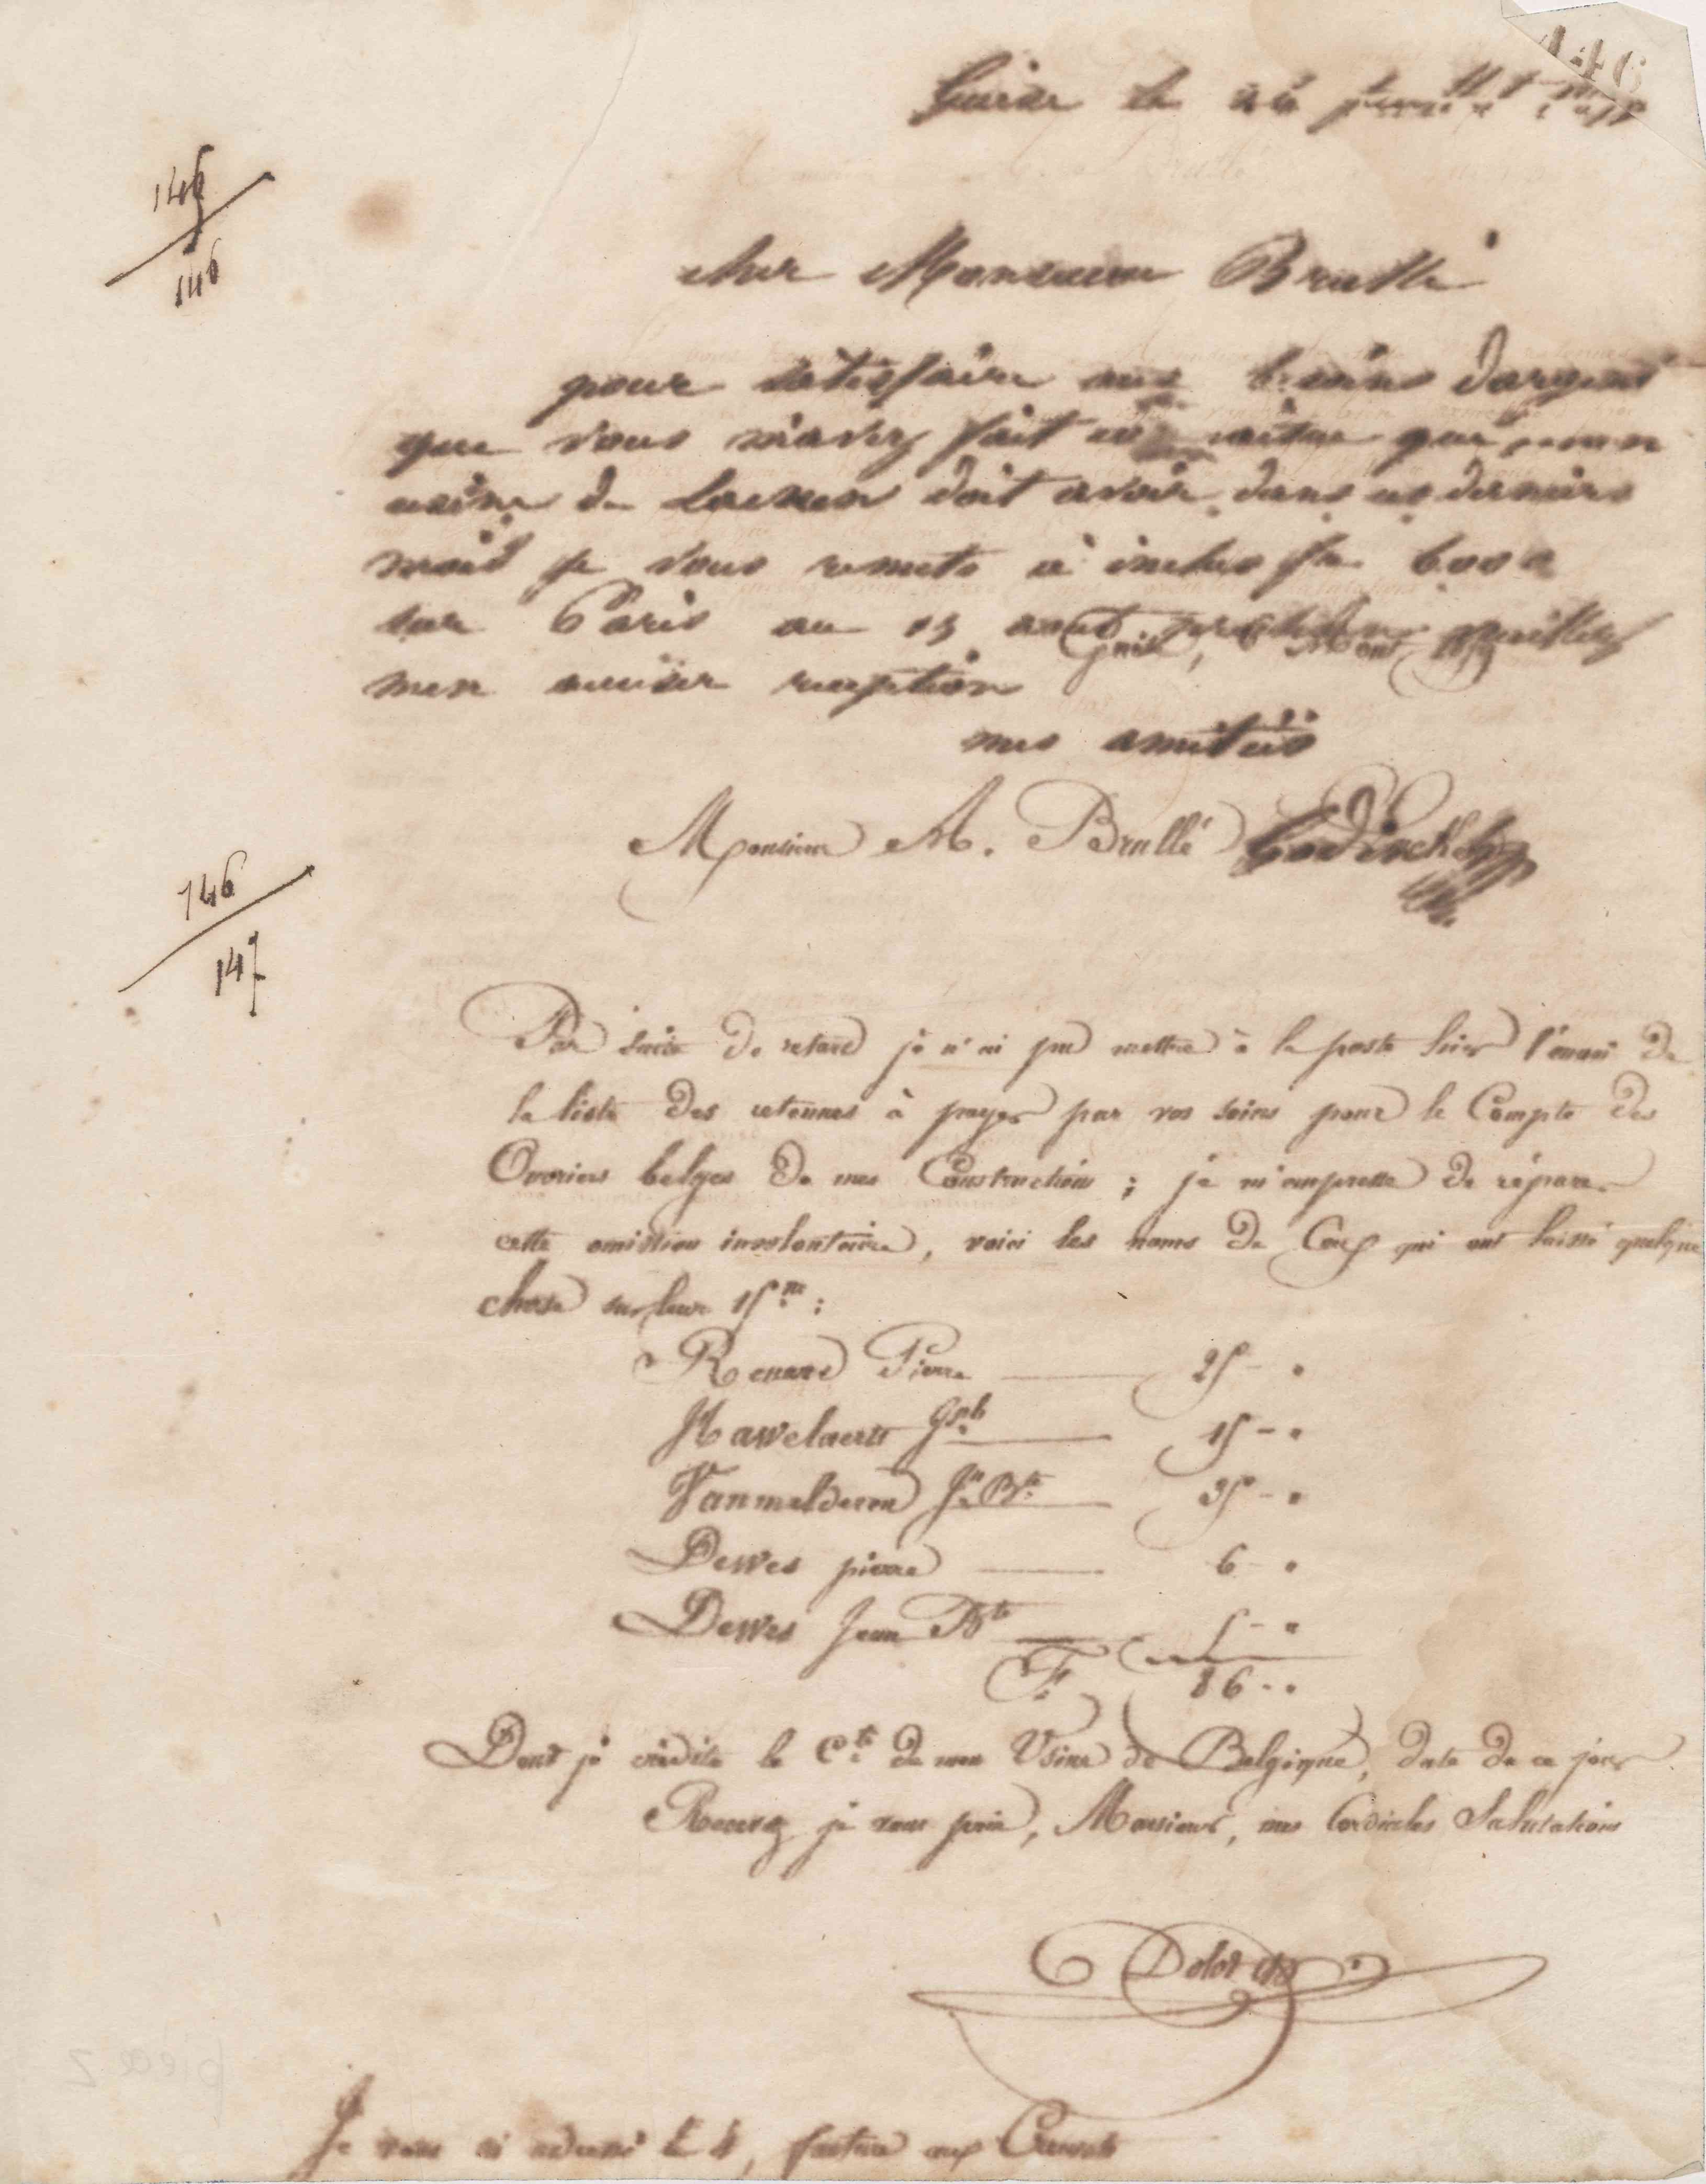 146
Guise le 26 juillet
146
146
cher Monsieur Brullé
pour satisfaire aux besoins d'argent
que vous m'avez fait connaître que mon
usine de Laeken doit avoir dans ces derniers
mois je vous remets ci inclus fr 6000
sur Paris au 15 août prochain veuillez
Guise, 6 Août 1859
men accuser reception
mes amitiés
Monsieur A. Brullé Godin
146
147
Par suite de retard je n'ai pu mettre à la poste hier l'envoi de
la liste des retenues à payer par vos soins pour le Compte des
Ouvriers belges de mes Constructions ; je m'empresse de réparer
cette omission involontaire, voici les noms de Ceux qui ont laissé quelque
chose sur leur 15ne :
Renard Pierre 25 - "
Hawelaerts 15 - "
Vanmalderen Jn Bte 35 - "
Dewes pierre 6 - "
Dewes Jean Bte 5 - "
F. 86 - "
Dont je crédite le Cte de mon Usine de Belgique, date de ce jour
Recevez je vous prie, Monsieur, mes Cordiales Salutations
Je vous ai adressé le 4, facture aux Creusets
pièce 2